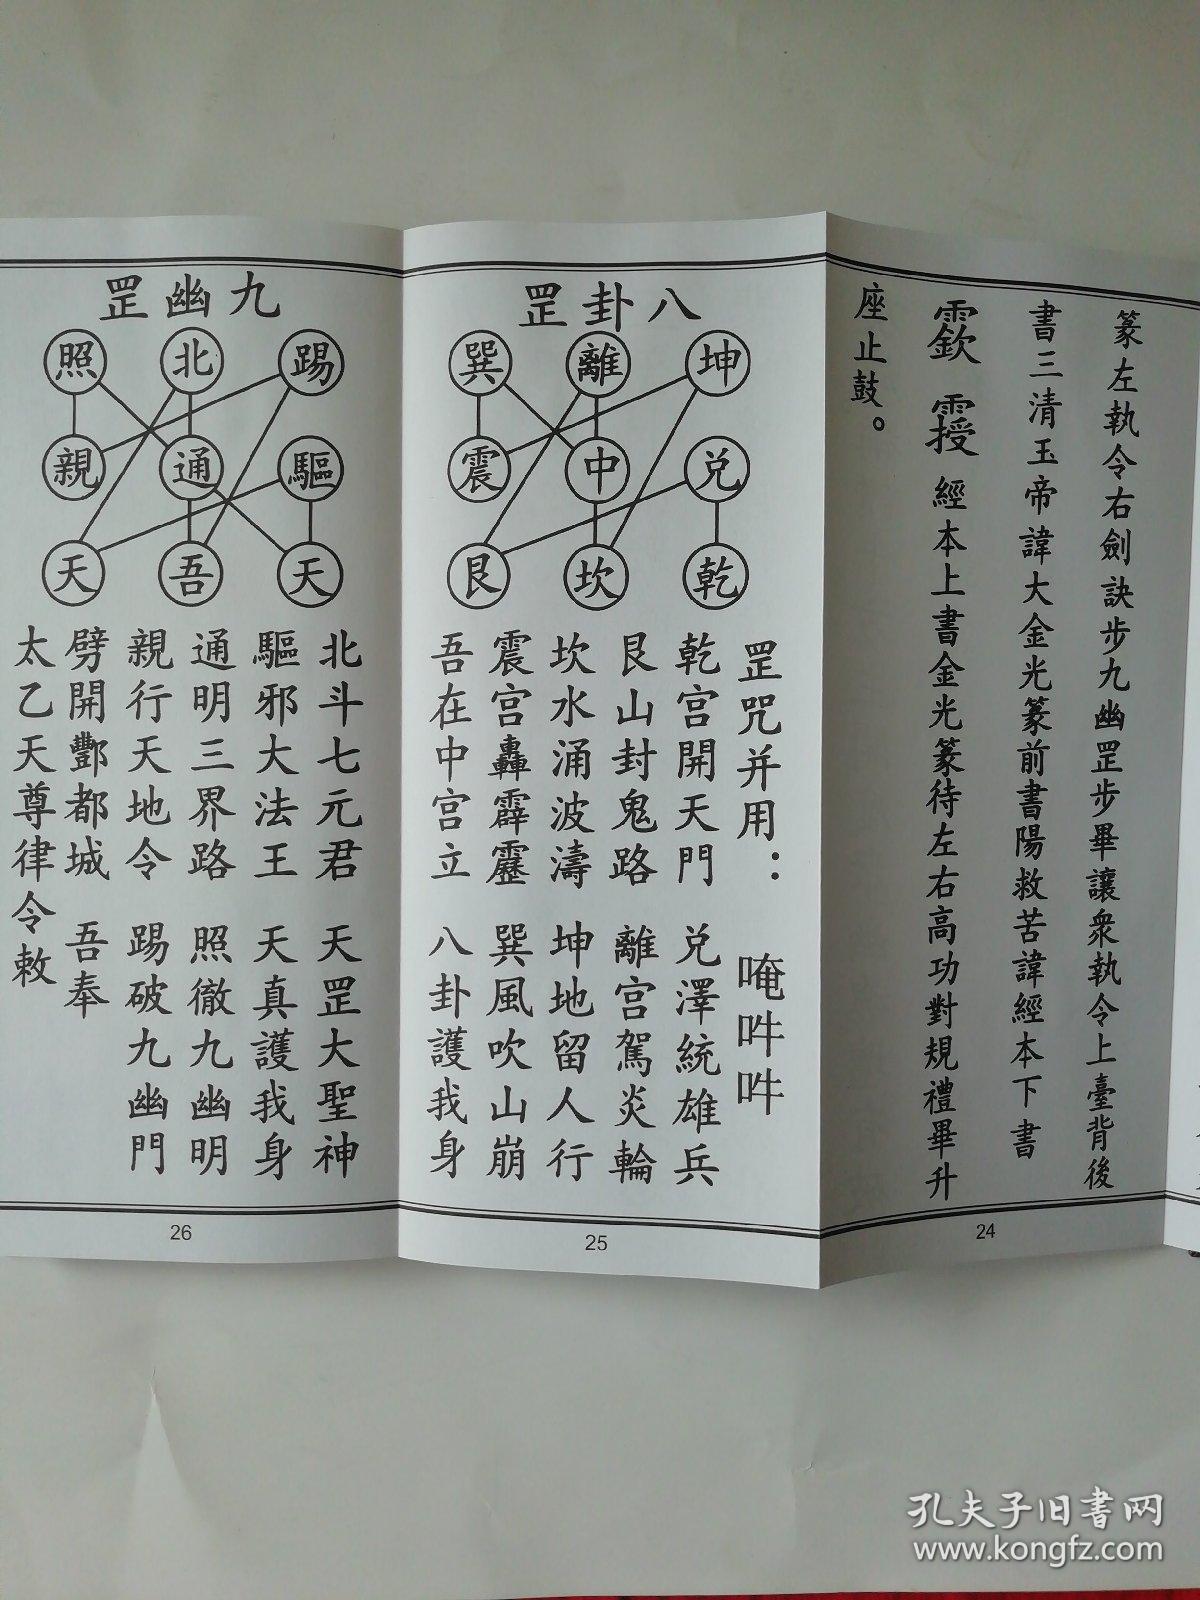 篆左執令右劍訣步九幽罡步畢讓衆執令上臺背後
書三清玉帝諱大金光篆前書陽救苦諱經本下書
經本上書金光篆待左右高功對規禮畢升
座止鼓。
24
八卦罡
坤 離 巽
兌 中 震
乾 坎 艮
罡咒并用：唵吽吽
乾宮開天門 兌澤統雄兵
艮山封鬼路 離宮駕炎輪
坎水涌波濤 坤地留人行
震宮轟霹靂 巽風吹山崩
吾在中宮立 八卦護我身
25
九幽罡
踢 北 照
驅 通 親
天 吾 天
北斗七元君 天罡大聖神
驅邪大法王 天真護我身
通明三界路 照徹九幽明
親行天地令 踢破九幽門
劈開酆都城 吾奉
太乙天尊律令敕
26
孔夫子旧書网
www.kongfz.com